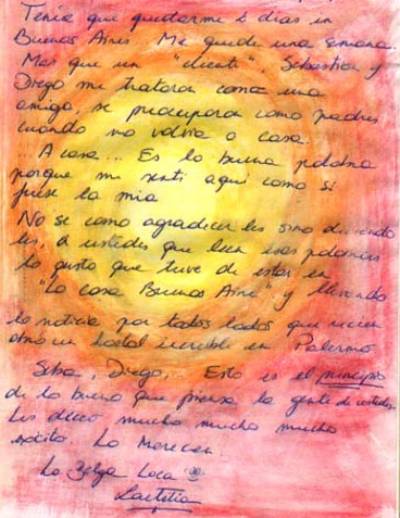 Tenia que quedarme 2 dias en
Buenos Aires. Me quede una semana.
Mas que un "client", Sebastian y
Diego me trataron como una
amiga, se preocuparon como padres
cuando no volvia a casa.
... A casa... Es la buena palabra
porque me senti aqui como si
fuese la mia
No se como agradecer les sino diciendo
les, a ustedes que leen esas palabras
lo gusto que tuve de estar en
"La casa Buenos Aires" y llevando
la noticia por todos lados que
un hostal increible en Palermo
Seba, Diego,... Esto es el principio
de lo bueno que piensa la gente de ustedes.
Les deseo mucho mucho mucho
exito. Lo Merecen.
La Belga Loca
Laetitia